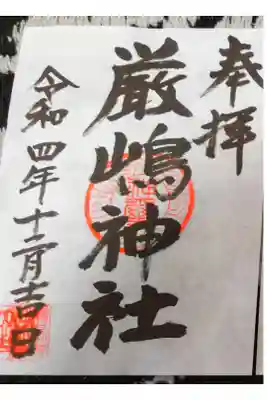 奉拝
厳嶋神社
令和四年十二月吉日